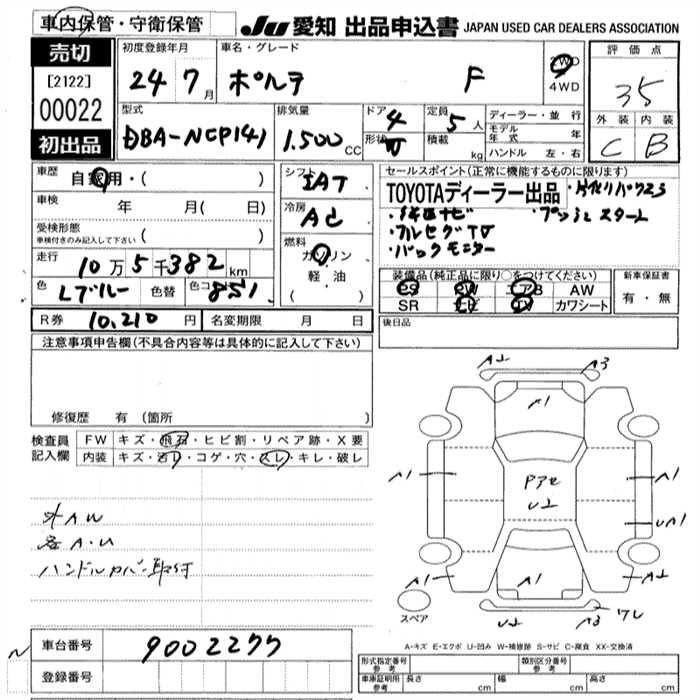 車内保管・守衛保管
JU 愛知 出品申込書 JAPAN USED CAR DEALERS ASSOCIATION
売切
[2122]
00022
初出品
初度登録年月
24 7月
車名・グレード
ポルテ F
2WD
4WD
評価点
35
外装 内装
C B
型式
DBA-NCP141
排気量
1.500 CC
ドア 4
形状 V
定員 5人
積載 kg
ディーラー・並行
モデル年式 年
ハンドル 左・右
車歴 自家用・( )
車検 年 月( 日)
受検形態
車検付きのみ記入して下さい ( )
走行 10万5千382km
色 Lブルー 色替 色コ 851
シフト IAT
冷房 AC
燃料 ガソリン
軽・油
( )
セールスポイント(正常に機能するものに限ります)
TOYOTAディーラー出品 ・片側パワスラ
・純正ナビ ・プッシュスタート
・フルセグTV
・バックモニター
装備品(純正品に限り○をつけてください)
PS PW エアB AW
SR ナビ TV カワシート
新車保証書
有・無
R券 10,210円 名変期限 月 日
後日品
注意事項申告欄(不具合内容等は具体的に記入して下さい)
修復歴 有 (箇所 )
検査員記入欄
FW キズ・飛石・ヒビ割・リペア跡・X要
内装 キズ・汚レ・コゲ・穴・スレ・キレ・破レ
オAW
各A・U
ハンドルカバー取付
A2 A3
A1
A1 Pアセ A1
U2 UA1
A1 A1 A2
スペア U2 A3 ワレ
A-キズ E-エクボ U-凹み W-補修跡 S-サビ C-腐食 XX-交換済
車台番号 9002277
登録番号
形式指定番号 参考 類別区分番号 参考
車庫証明用 参考 長さ cm 幅 cm 高さ cm